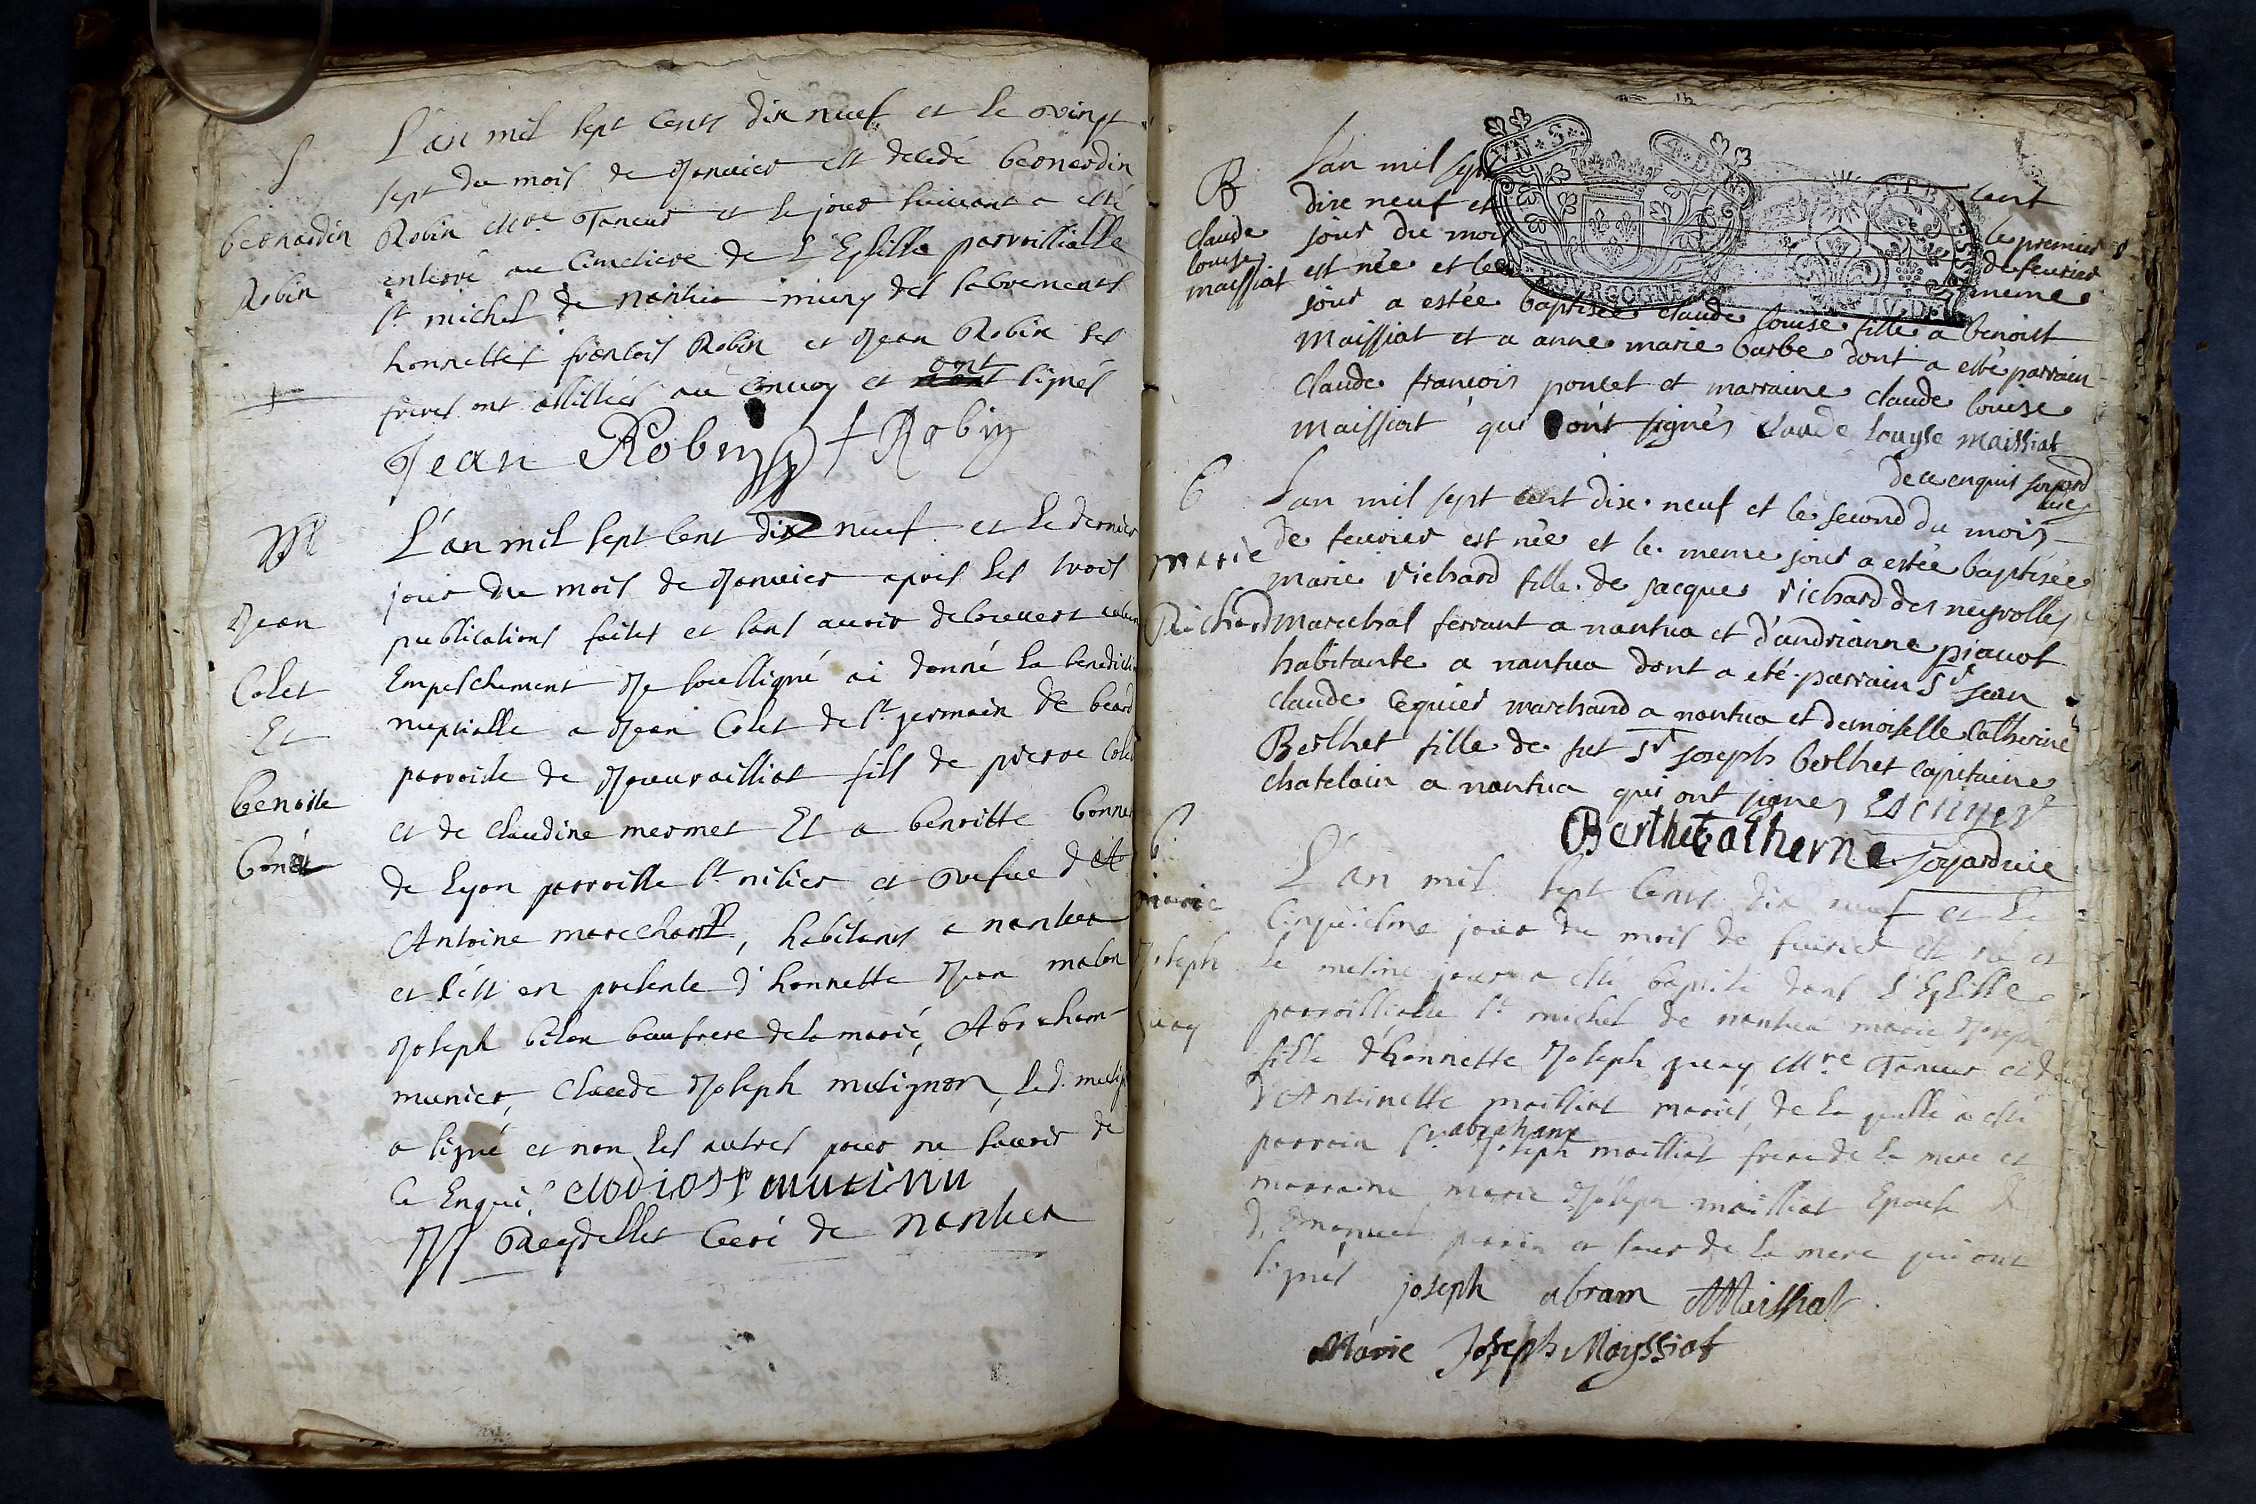 S
bernardin
Robin
L'an mil sept cents dix neuf et le vingt
sept du mois de Janvier est decedé bernardin
Robin Mre Taneur et le jour suivant a esté
enterré au Cimetiere de L'Eglisse parroissialle
st michel de nantua muny des sacrements
honnettes francois Robin et Jean Robin ses
freres ont assistés au convoy et ont signés
Jean Robin + Robin
M
Jean
Colet
Et
benoite
bonet
L'an mil sept cent dix neuf et le dernier
jour du mois de Janvier apres les trois
publications faites et sans avoir descouvert aucun
Empeschement Je soussigné ai donné la benediction
nuptialle a Jean Colet de st germain de beard
parroisse de Jeuvrailliat fils de pierre Colet
et de claudine mermet Et a benoitte bonnet
de Lyon parroisse st nisier et vefue d'
Antoine marechant, habitant a nantua
et s'est en presente d'honnette Jean
Joseph bilon beaufrere de la marié, Abraham
munier, claude Joseph mutignon, led.
a signé et non les autres pour ne scavoir de
ce Enqui.
Reydellet Curé de nantua
B
claude
louise
maissiat
L'an mil sept cent
dixe neuf et le premier
jour du mois de feurier
est née et le meme
jour a estée baptisée claude louise fille a benoist
maissiat et a anne marie barbe dont a esté parrain
claude francois poncet et marraine claude louise
maissiat qui ont signés Claude Louyse Maissiat
de ce enquis
B
marie
Richard
Lan mil sept cent dixe neuf et le second du mois
de feurier est née et le meme jour a estée baptisée
marie richard fille de jacques richard des neyrolles
marechal ferrant a nantua et d'andrianne piauot
habitante a nantua dont a eté parrain Sr jean
claude Lequier marchand a nantua et demoiselle Catherine
Berthet fille de fut Sr joseph berthet capitaine
chatelain a nantua qui ont signes
Berthet Catherine
B
marie
Joseph
L'an mil sept Cents dix neuf et le
Cinquiesme jour du mois de feurier est né et
le mesme jour a esté baptisé dans l'Eglisse
parroissialle st michel de nantua marie Joseph
fille d'honnette Joseph Mre Taneur et
d'Antoinette maissiat mariés, de la quelle a esté
parrain Sr abraham Joseph maissiat frere de la mere et
marraine marie Joseph maissiat Epouse de
d. Emanuel perrin et seur de la mere qui ont
signés joseph abram Maissiat
Marie Joseph Mayssiat